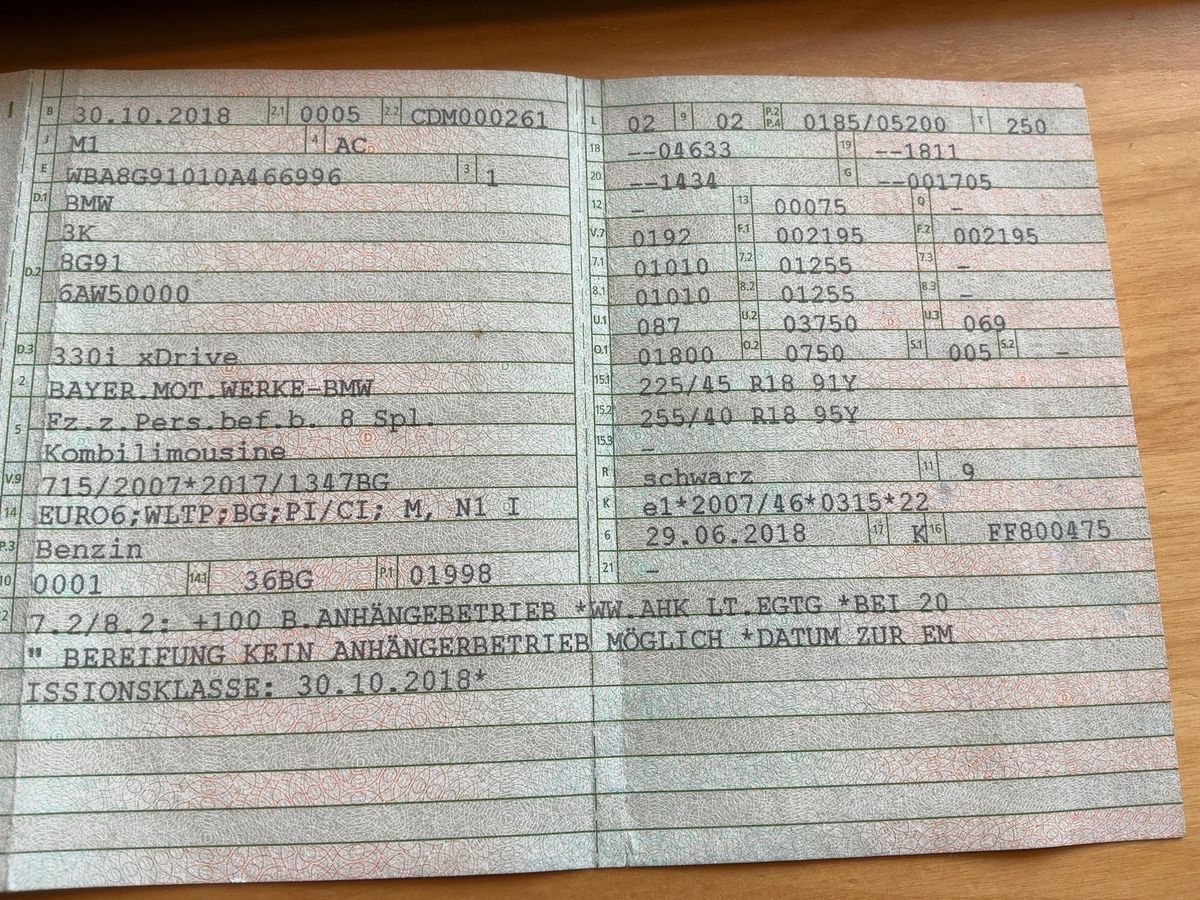 B 30.10.2018 2.1 0005 2.2 CDM000261
J M1 4 AC
E WBA8G91010A466996 3 1
D.1 BMW
3K
D.2 8G91
6AW50000
D.3 330i xDrive
2 BAYER.MOT.WERKE-BMW
5 Fz.z.Pers.bef.b. 8 Spl.
Kombilimousine
V.9 715/2007*2017/1347BG
14 EURO6;WLTP;BG;PI/CI; M, N1 I
P.3 Benzin
10 0001 14.1 36BG P.1 01998
L 02 9 02 P.2 P.4 0185/05200 T 250
18 --04633 19 --1811
20 --1434 G --001705
12 – 13 00075 Q –
V.7 0192 F.1 002195 F.2 002195
7.1 01010 7.2 01255 7.3 –
8.1 01010 8.2 01255 8.3 –
U.1 087 U.2 03750 U.3 069
O.1 01800 O.2 0750 S.1 005 S.2 –
15.1 225/45 R18 91Y
15.2 255/40 R18 95Y
15.3 –
R schwarz 11 9
K e1*2007/46*0315*22
6 29.06.2018 17 K 16 FF800475
21 –
22 7.2/8.2: +100 B.ANHÄNGEBETRIEB *WW.AHK LT.EGTG *BEI 20
" BEREIFUNG KEIN ANHÄNGERBETRIEB MÖGLICH *DATUM ZUR EM
ISSIONSKLASSE: 30.10.2018*